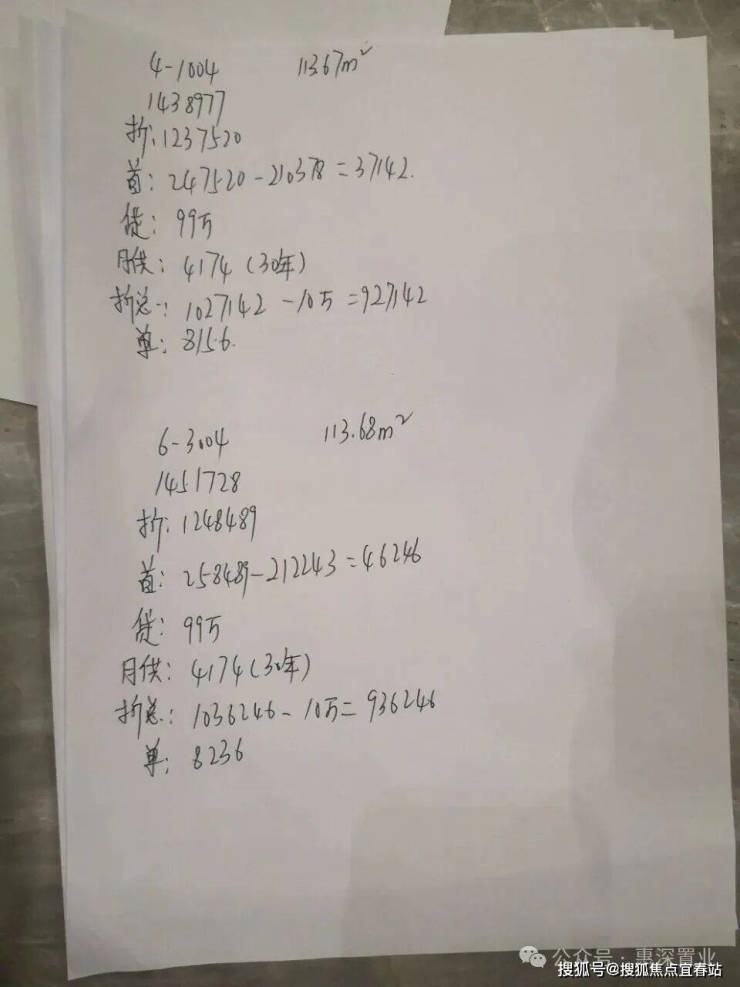 4-1004 113.67m²
1438977
折:1237520
首:247520-210378=37142.
贷:99万
月供:4174(30年)
折总:1027142-10万=927142
单:8156.
6-3004 113.68m²
1451728
折:1248489
首:258489-212243=46246
贷:99万
月供:4174(30年)
折总:1036246-10万=936246
单:8236
公众号·惠深置业
搜狐号@搜狐焦点宜春站